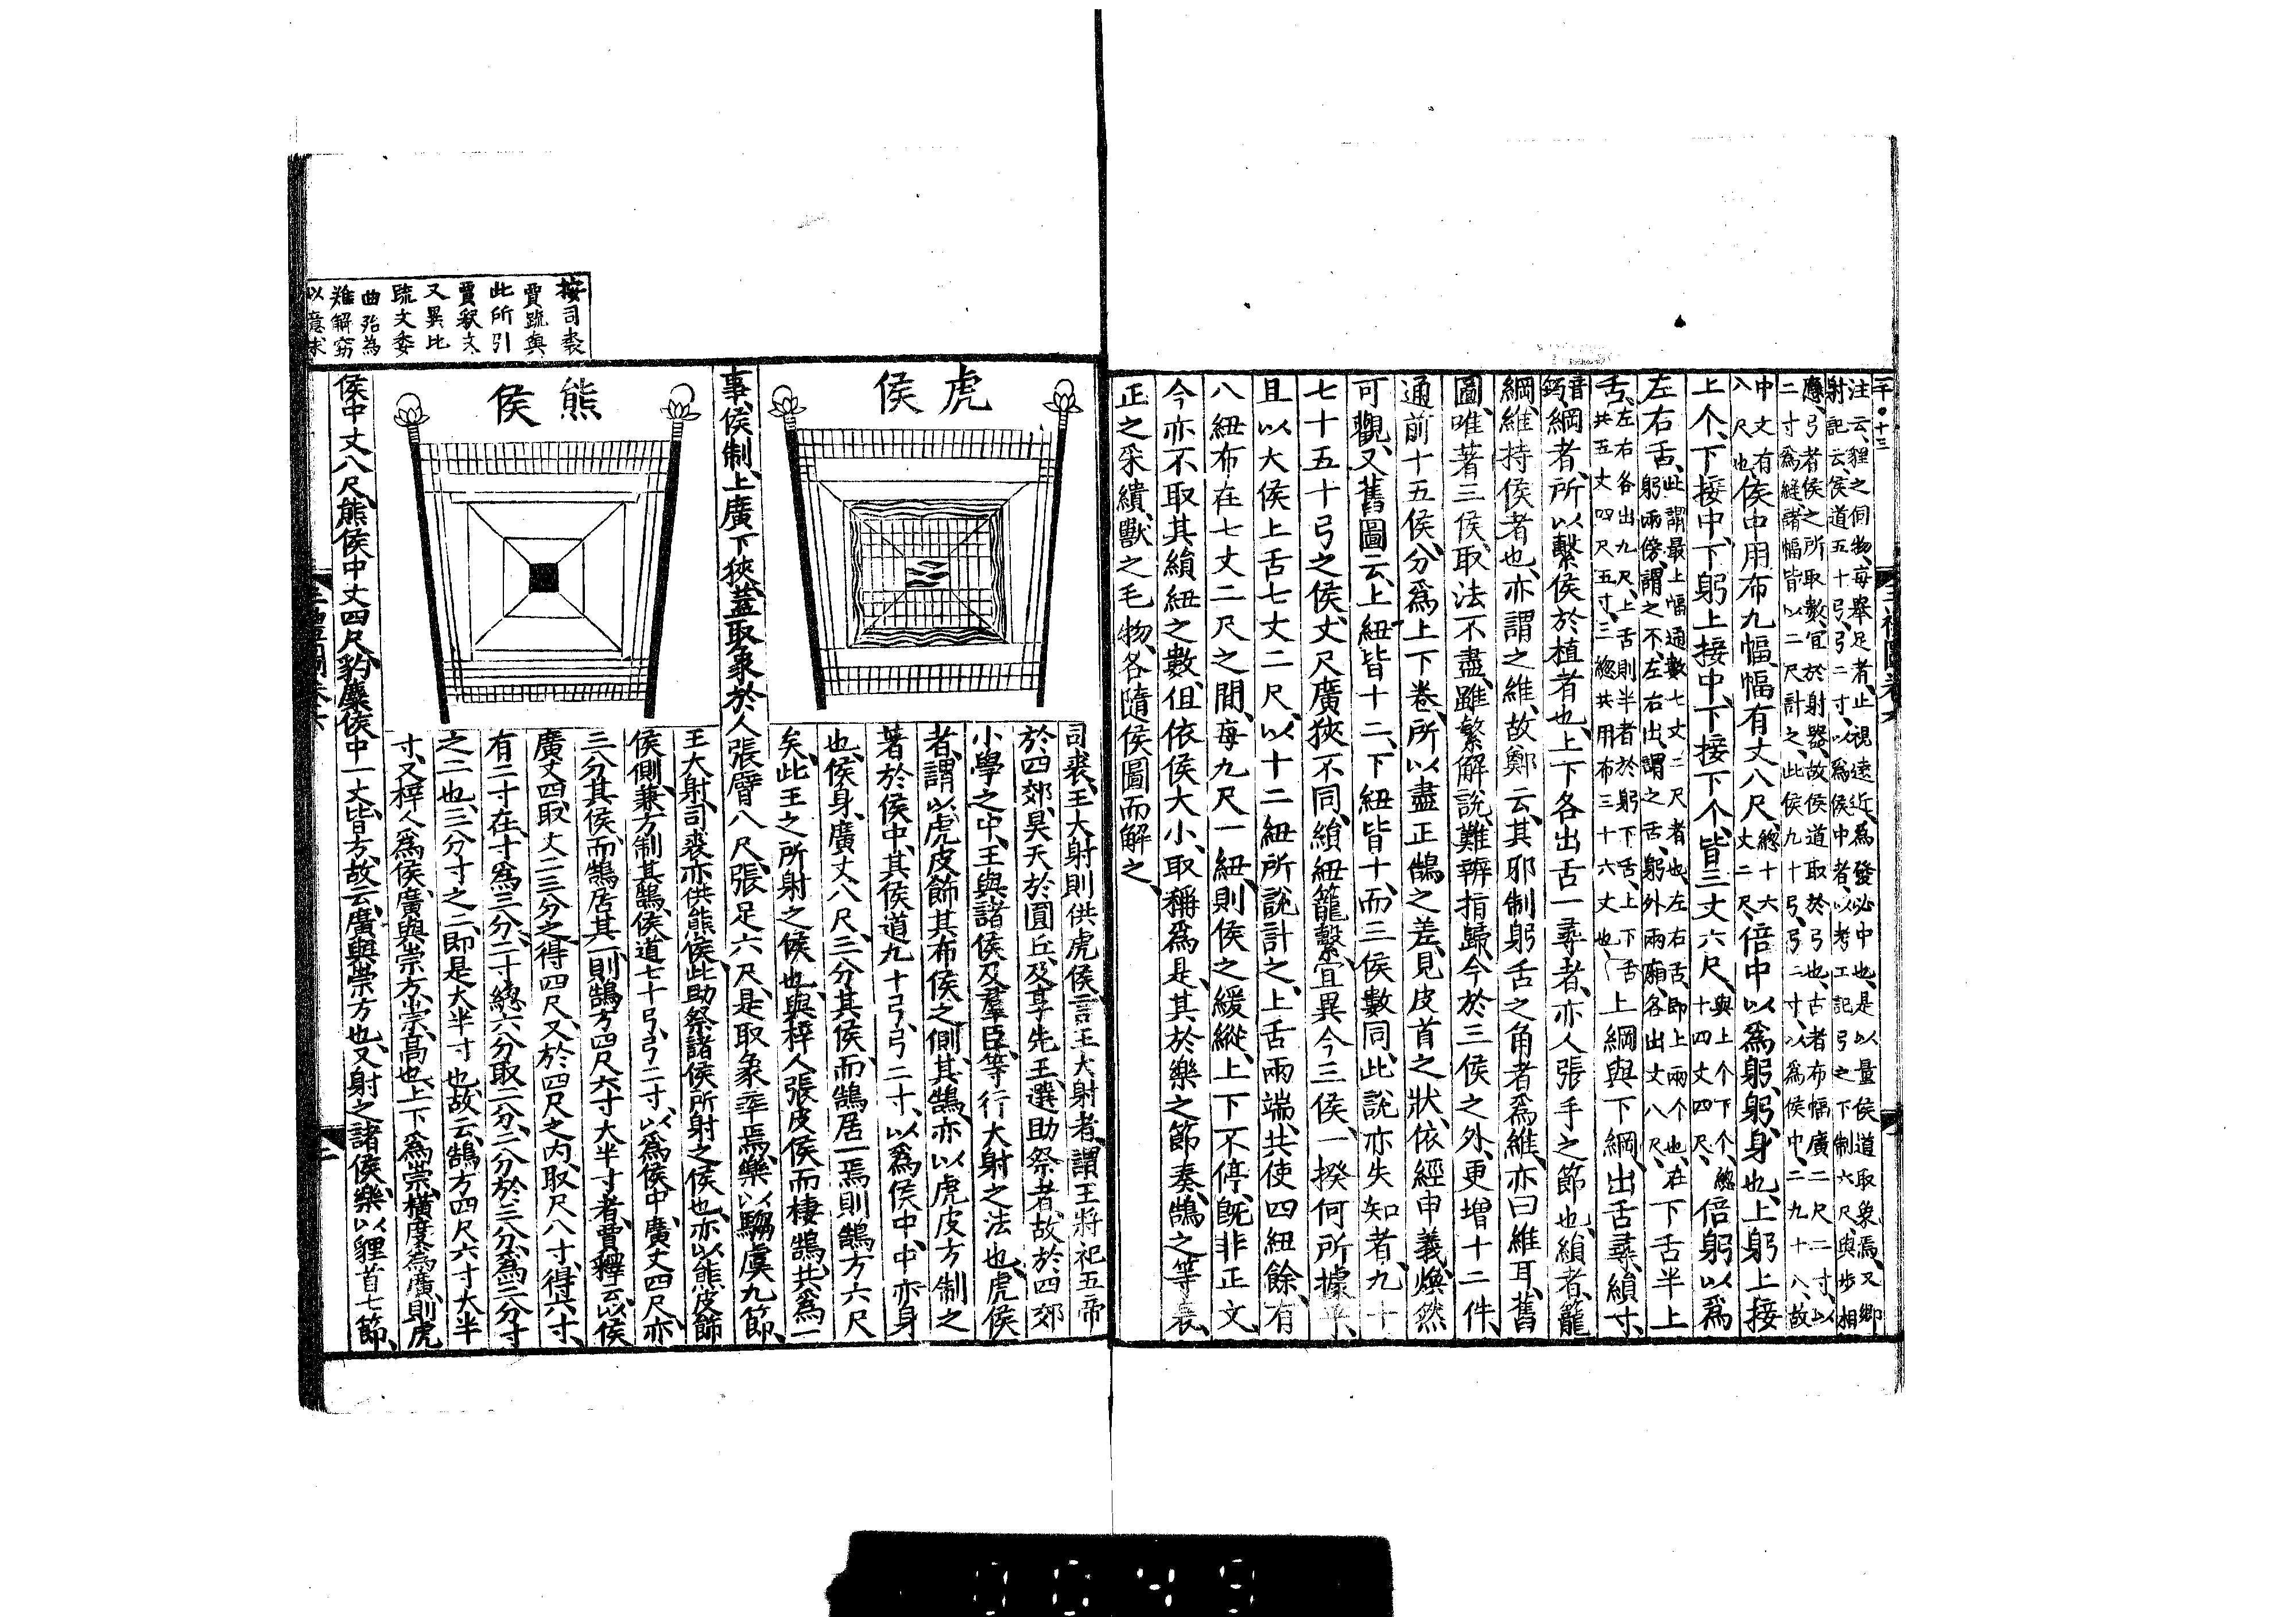 二千・十三
注云、貍之伺物、每舉足者、止視遠近、爲發必中也、是以量侯道取象焉、又鄉
射記云、侯道五十弓、弓二寸、以爲侯中者、以考工記弓之下制六尺、與步相
應、弓者侯之所取數、宜於射器、故侯道取於弓也、古者布幅廣二尺二寸、以
二寸爲縫、諸幅皆以二尺計之、此侯九十弓、弓二寸、以爲侯中、二九十八、故
中丈有
八尺也、侯中用布九幅、幅有丈八尺、總十六丈二尺、倍中以爲躬、躬、身也、上躬上接
上个、下接中、下躬上接中、下接下个、皆三丈六尺、與上个下个、總十四丈四尺、倍躬以爲
左右舌、此謂最上幅、通數七丈二尺者也、左右舌、即上兩个也、在躬兩傍、謂之不、左右出、謂之舌、躬外兩廂、各出丈八尺、下舌半上
舌、左右各出九尺、上舌則半者於躬、下舌、上下舌共五丈四尺五寸、三總共用布三十六丈也、上綱與下綱、出舌尋、縜寸、
音鈞、綱者、所以繫侯於植者也、上下各出舌一尋者、亦人張手之節也、縜者、籠
綱、維持侯者也、亦謂之維、故鄭云、其邪制躬舌之角者爲維、亦曰維耳、舊
圖、唯著三侯、取法不盡、雖繁解說、難辨指歸、今於三侯之外、更增十二件、
通前十五侯、分爲上下卷、所以盡正鵠之差、見皮首之狀、依經申義、煥然
可觀、又舊圖云、上紐皆十二、下紐皆十、而三侯數同、此說亦失知者、九十
七十五十弓之侯、丈尺廣狹不同、縜紐籠繫、宜異今三侯、一揆何所據乎、
且以大侯上舌七丈二尺、以十二紐所說計之、上舌兩端、共使四紐餘、有
八紐布在七丈二尺之間、每九尺一紐、則侯之緩縱、上下不停、旣非正文、
今亦不取其縜紐之數、但依侯大小、取稱爲是、其於樂之節奏、鵠之等衰、
正之采繢、獸之毛物、各隨侯圖而解之、
三禮圖卷六
虎侯
司裘、王大射、則供虎侯、言王大射者、謂王將祀五帝
於四郊、昊天於圓丘、及享先王、選助祭者、故於四郊
小學之中、王與諸侯及羣臣等、行大射之法也、虎侯
者、謂以虎皮飾其布侯之側、其鵠、亦以虎皮方制之
著於侯中、其侯道九十弓、弓二寸、以爲侯中、中亦身
也、侯身、廣丈八尺、三分其侯、而鵠居一焉、則鵠方六尺
矣、此王之所射之侯也、與梓人張皮侯而棲鵠、共爲一
事、侯制、上廣下狹、蓋取象於人張臂八尺、張足六尺、是取象率焉、樂以騶虞九節、
熊侯
王大射、司裘亦供熊侯、此助祭諸侯所射之侯也、亦以熊皮飾
侯側、兼方制其鵠、侯道七十弓、弓二寸、以爲侯中、廣丈四尺、亦
三分其侯、而鵠居其一、則鵠方四尺六寸大半寸者、賈釋云、以侯
廣丈四、取丈二三分之得四尺、又於四尺之內、取尺八寸、得六寸、
有二寸在、寸爲三分、二寸總六分、取二分、二分於三分、爲三分寸
之二也、三分寸之二、即是大半寸也、故云、鵠方四尺六寸大半
寸、又梓人爲侯、廣與崇方、崇、高也、上下爲崇、橫度爲廣、則虎
侯中丈八尺、熊侯中丈四尺、豹麋侯中一丈、皆方、故云、廣與崇方也、又射之諸侯、樂以貍首七節、
按司裘
賈疏與
此所引
賈釈文
又異比
疏文委
曲殆為
難解窃
以意求
三禮圖卷六
0049